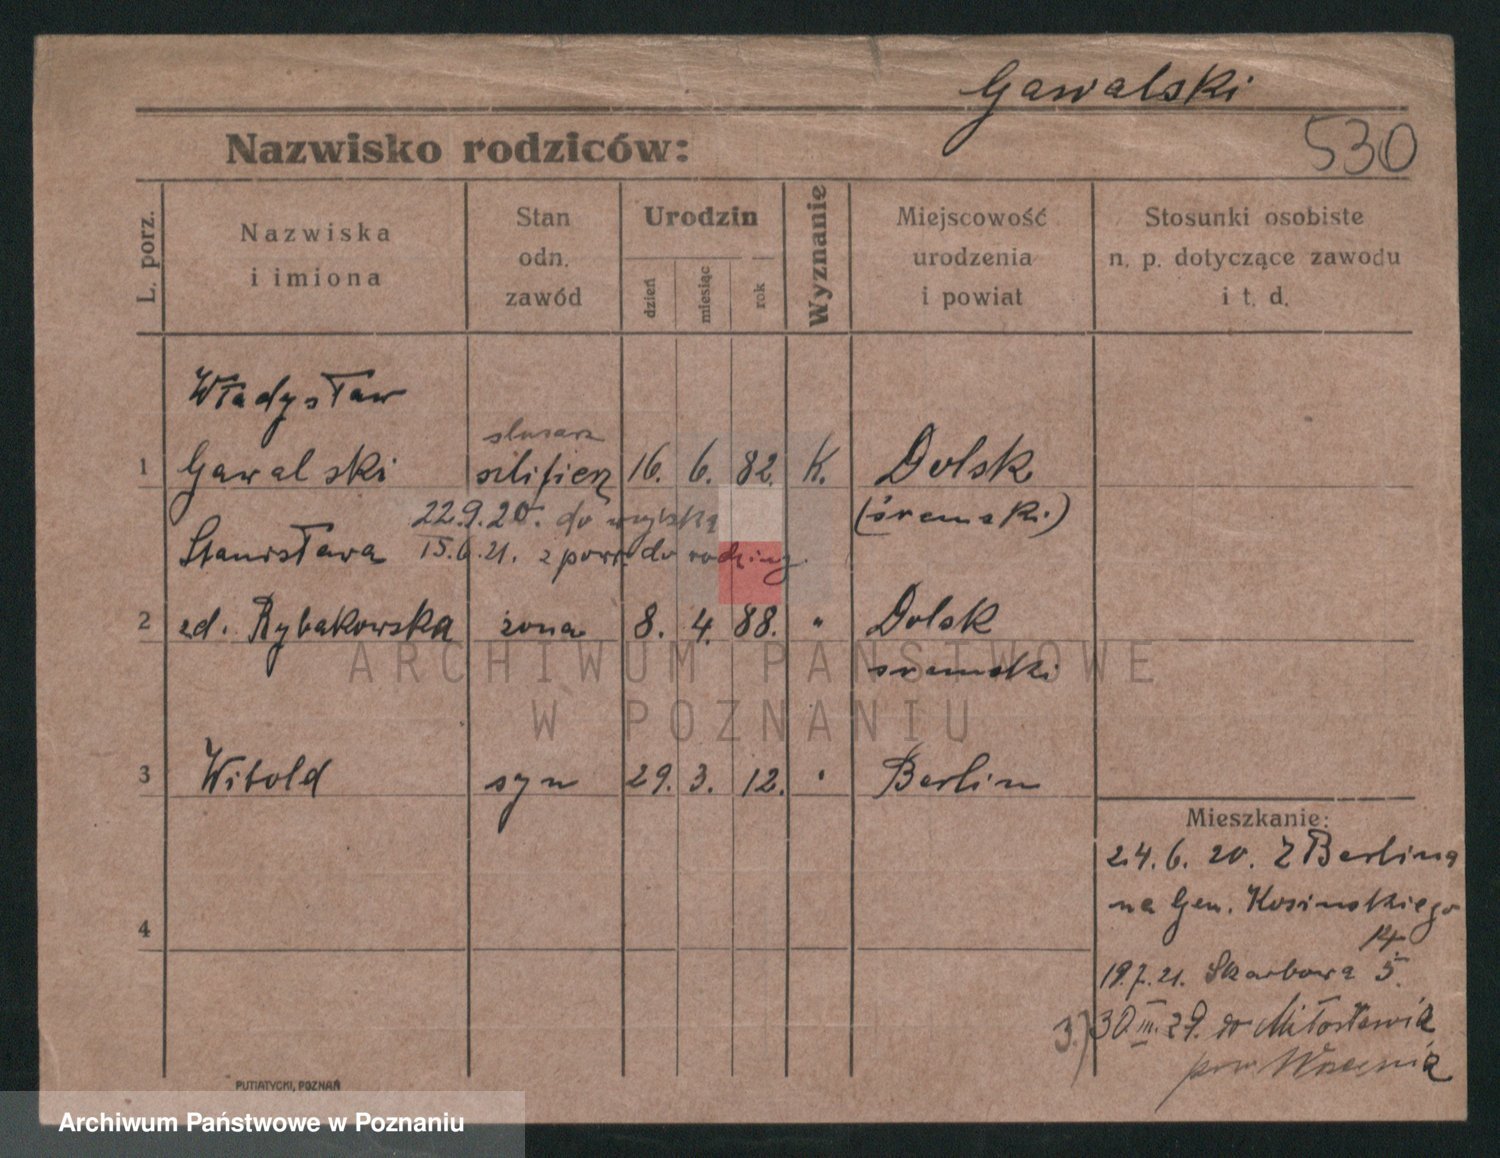 Gawalski
530
Nazwisko rodziców:
L. porz.
Nazwiska
i imiona
Stan
odn.
zawód
Urodzin
dzień
miesiąc
rok
Wyznanie
Miejscowość
urodzenia
i powiat
Stosunki osobiste
n. p. dotyczące zawodu
i t. d.
Władysław
slusarz
1 Gawalski szlifierz 16. 6. 82. K. Dolsk
22.9.20. do wojska (śremski)
Stanisława 15.6.21. z powr. do rodziny.
2 zd. Rybakowska żona 8. 4. 88. " Dolsk
sremski
ARCHIWUM PAŃSTWOWE
W POZNANIU
3 Witold syn 29. 3. 12. " Berlin
Mieszkanie:
24. 6. 20. Z Berlina
na Gen. Kosinskiego
14
4
19.7.21. Skarbowa 5.
3.) 30.III.29. do Miłosławia
pow. Wrzesnia
PUTIATYCKI, POZNAŃ
Archiwum Państwowe w Poznaniu